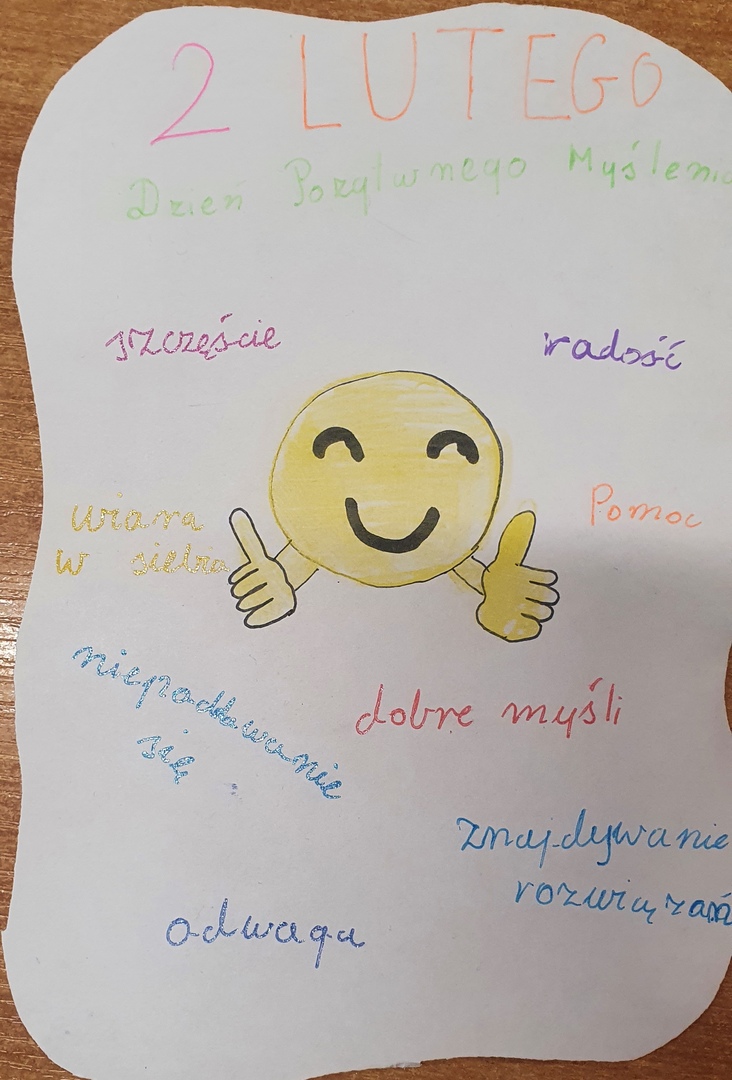 2 LUTEGO
Dzień Pozytwnego Myślenia
szczęście
radość
wiara
w siebie
Pomoc
niepoddawanie
się
dobre myśli
znajdywanie
rozwiązań
odwaga